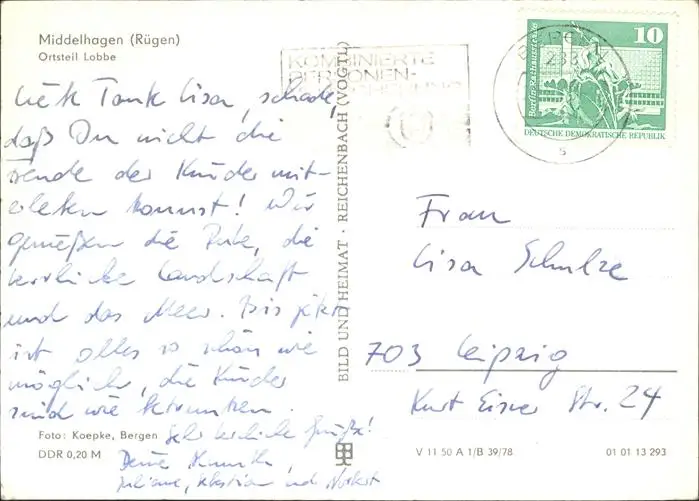 Middelhagen (Rügen)
Ortsteil Lobbe
KOMBINIERTE
PERSONEN-
10
Berlin-Rathausstraße
DEUTSCHE DEMOKRATISCHE REPUBLIK
Liebe Tante Lisa, schade,
daß Du nicht die
Freude der Kinder mit-
erleben kannst! Wir
genießen die Ruhe, die
herrliche Landschaft
und das Meer. Bis jetzt
ist alles so schön wie
möglich, die Kinder
sind wie betrunken.
Sehr herzliche Grüße!
Deine
Juliane, Sebastian und Norbert
Foto: Koepke, Bergen
DDR 0,20 M
BILD UND HEIMAT · REICHENBACH (VOGTL)
Frau
Lisa Schulze
703 Leipzig
Kurt Eisner Str. 24
V 11 50 A 1/B 39/78
01 01 13 293